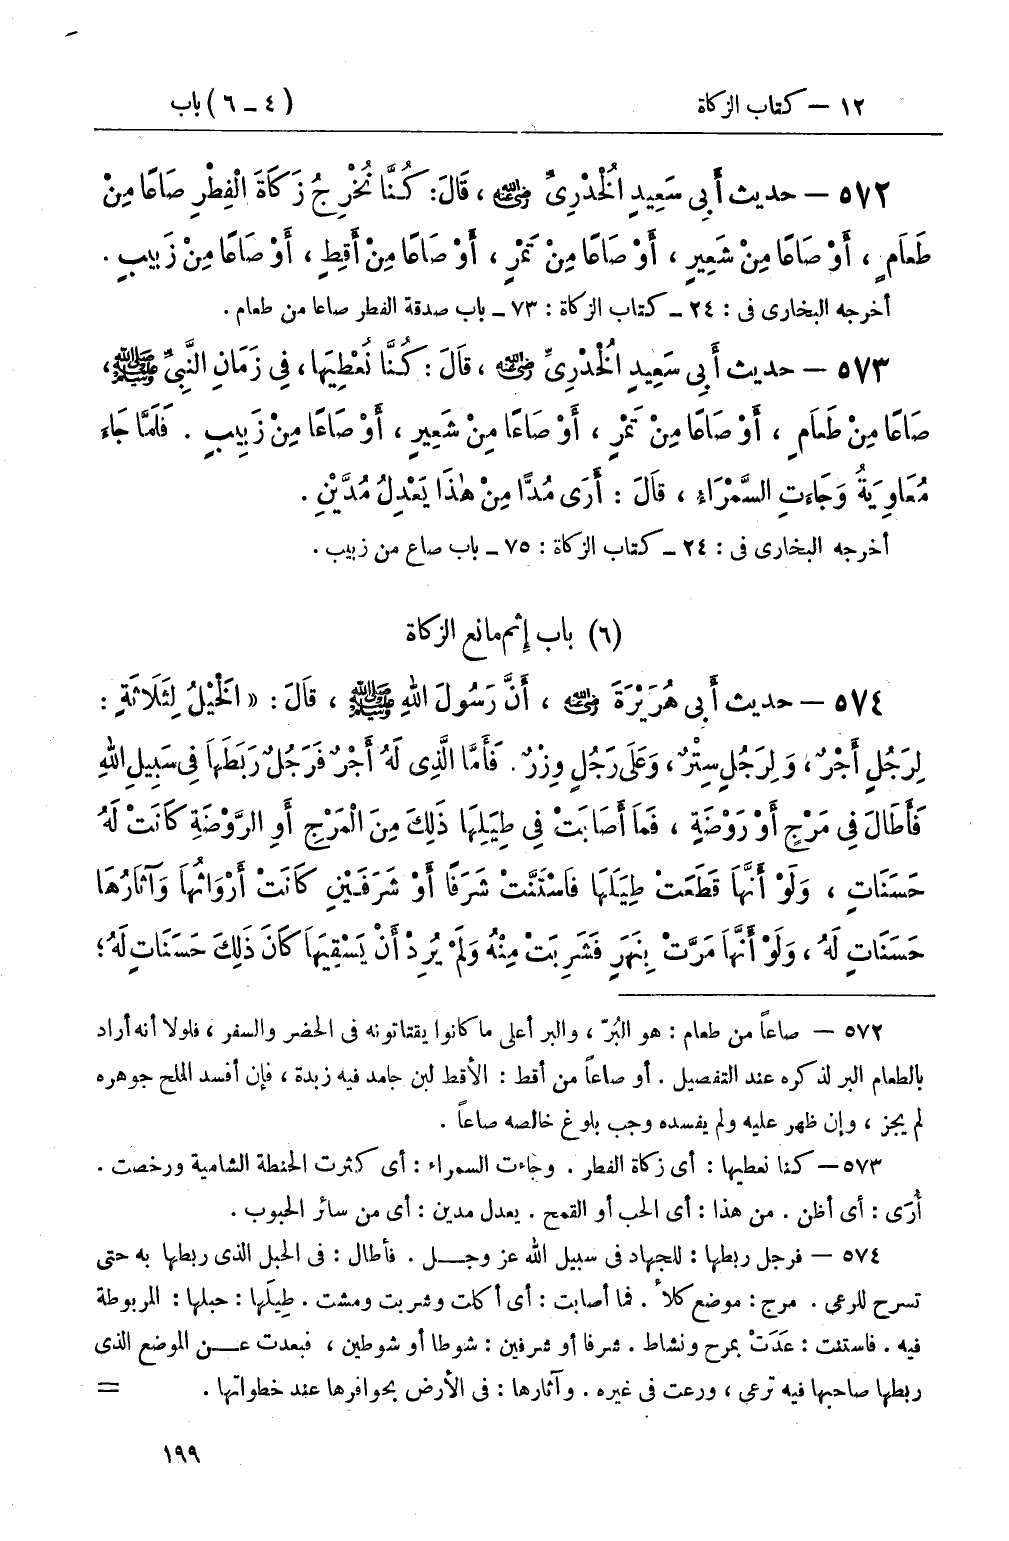 ١٢ – كتاب الزكاة
(٤ – ٦) باب
٥٧٢ – حديث أَبِي سَعِيدٍ الْخُدْرِيِّ رضي الله عنه ، قَالَ: كُنَّا نُخْرِجُ زَكَاةَ الْفِطْرِ صَاعًا مِنْ
طَعَامٍ ، أَوْ صَاعًا مِنْ شَعِيرٍ ، أَوْ صَاعًا مِنْ تَمْرٍ ، أَوْ صَاعًا مِنْ أَقِطٍ ، أَوْ صَاعًا مِنْ زَبِيبٍ .
أخرجه البخارى فى : ٢٤ – كتاب الزكاة : ٧٣ – باب صدقة الفطر صاعا من طعام .
٥٧٣ – حديث أَبِي سَعِيدٍ الْخُدْرِيِّ رضي الله عنه ، قَالَ : كُنَّا نُعْطِيهَا، فِي زَمَانِ النَّبِيِّ ﷺ،
صَاعًا مِنْ طَعَامٍ ، أَوْ صَاعًا مِنْ تَمْرٍ ، أَوْ صَاعًا مِنْ شَعِيرٍ ، أَوْ صَاعًا مِنْ زَبِيبٍ . فَلَمَّا جَاءَ
مُعَاوِيَةُ وَجَاءَتِ السَّمْرَاءُ ، قَالَ : أُرَى مُدًّا مِنْ هٰذَا يَعْدِلُ مُدَّيْنِ .
أخرجه البخارى فى : ٢٤ – كتاب الزكاة : ٧٥ – باب صاع من زبيب .
(٦) باب إثم مانع الزكاة
٥٧٤ – حديث أَبِي هُرَيْرَةَ رضي الله عنه ، أَنَّ رَسُولَ اللهِ ﷺ ، قَالَ : « الْخَيْلُ لِثَلَاثَةٍ :
لِرَجُلٍ أَجْرٌ ، وَلِرَجُلٍ سِتْرٌ ، وَعَلَى رَجُلٍ وِزْرٌ . فَأَمَّا الَّذِى لَهُ أَجْرٌ فَرَجُلٌ رَبَطَهَا فِى سَبِيلِ اللهِ
فَأَطَالَ فِى مَرْجٍ أَوْ رَوْضَةٍ ، فَمَا أَصَابَتْ فِي طِيَلِهَا ذَلِكَ مِنَ الْمَرْجِ أَوِ الرَّوْضَةِ كَانَتْ لَهُ
حَسَنَاتٍ ، وَلَوْ أَنَّهَا قَطَعَتْ طِيَلَهَا فَاسْتَنَّتْ شَرَفًا أَوْ شَرَفَيْنِ كَانَتْ أَرْوَاثُهَا وَآثَارُهَا
حَسَنَاتٍ لَهُ ، وَلَوْ أَنَّهَا مَرَّتْ بِنَهَرٍ فَشَرِبَتْ مِنْهُ وَلَمْ يُرِدْ أَنْ يَسْقِيَهَا كَانَ ذَلِكَ حَسَنَاتٍ لَهُ ؛
٥٧٢ – صاعاً من طعام : هو البُرّ ، والبر أعلى ما كانوا يقتاتونه فى الحضر والسفر ، فلولا أنه أراد
بالطعام البر لذكره عند التفصيل . أو صاعاً من أقط : الأقط لبن جامد فيه زبدة ، فإن أفسد الملح جوهره
لم يجز ، وإن ظهر عليه ولم يفسده وجب بلوغ خالصه صاعاً .
٥٧٣ – كنا نعطيها : أى زكاة الفطر . وجاءت السمراء : أى كثرت الحنطة الشامية ورخصت .
أُرَى : أى أظن . من هذا : أى الحب أو القمح . يعدل مدين : أى من سائر الحبوب .
٥٧٤ – فرجل ربطها : للجهاد فى سبيل الله عز وجــل . فأطال : فى الحبل الذى ربطها به حتى
تسرح للرعى . مرج : موضع كلأ . فما أصابت : أى أكلت وشربت ومشت . طِيَلَها : حبلها : المربوطة
فيه . فاستنت : عَدَتْ بمرح ونشاط . شرفا أو شرفين : شوطا أو شوطين ، فبعدت عــن الموضع الذى
ربطها صاحبها فيه ترعى ، ورعت فى غيره . وآثارها : فى الأرض بحوافرها عند خطواتها . =
١٩٩